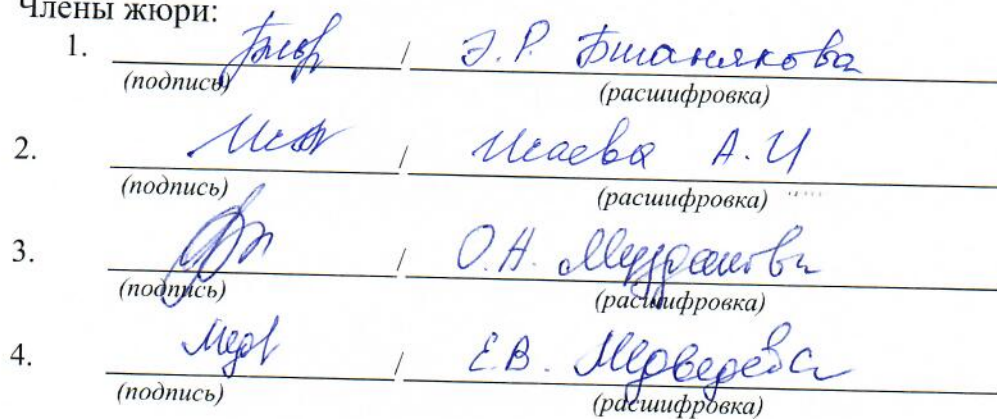 Члены жюри:
1. / Э.Р. Бшанякова
(подпись) (расшифровка)
2. / Исаева А.И
(подпись) (расшифровка)
3. / О.Н.
(подпись) (расшифровка)
4. Медв / Е.В. Медведева
(подпись) (расшифровка)